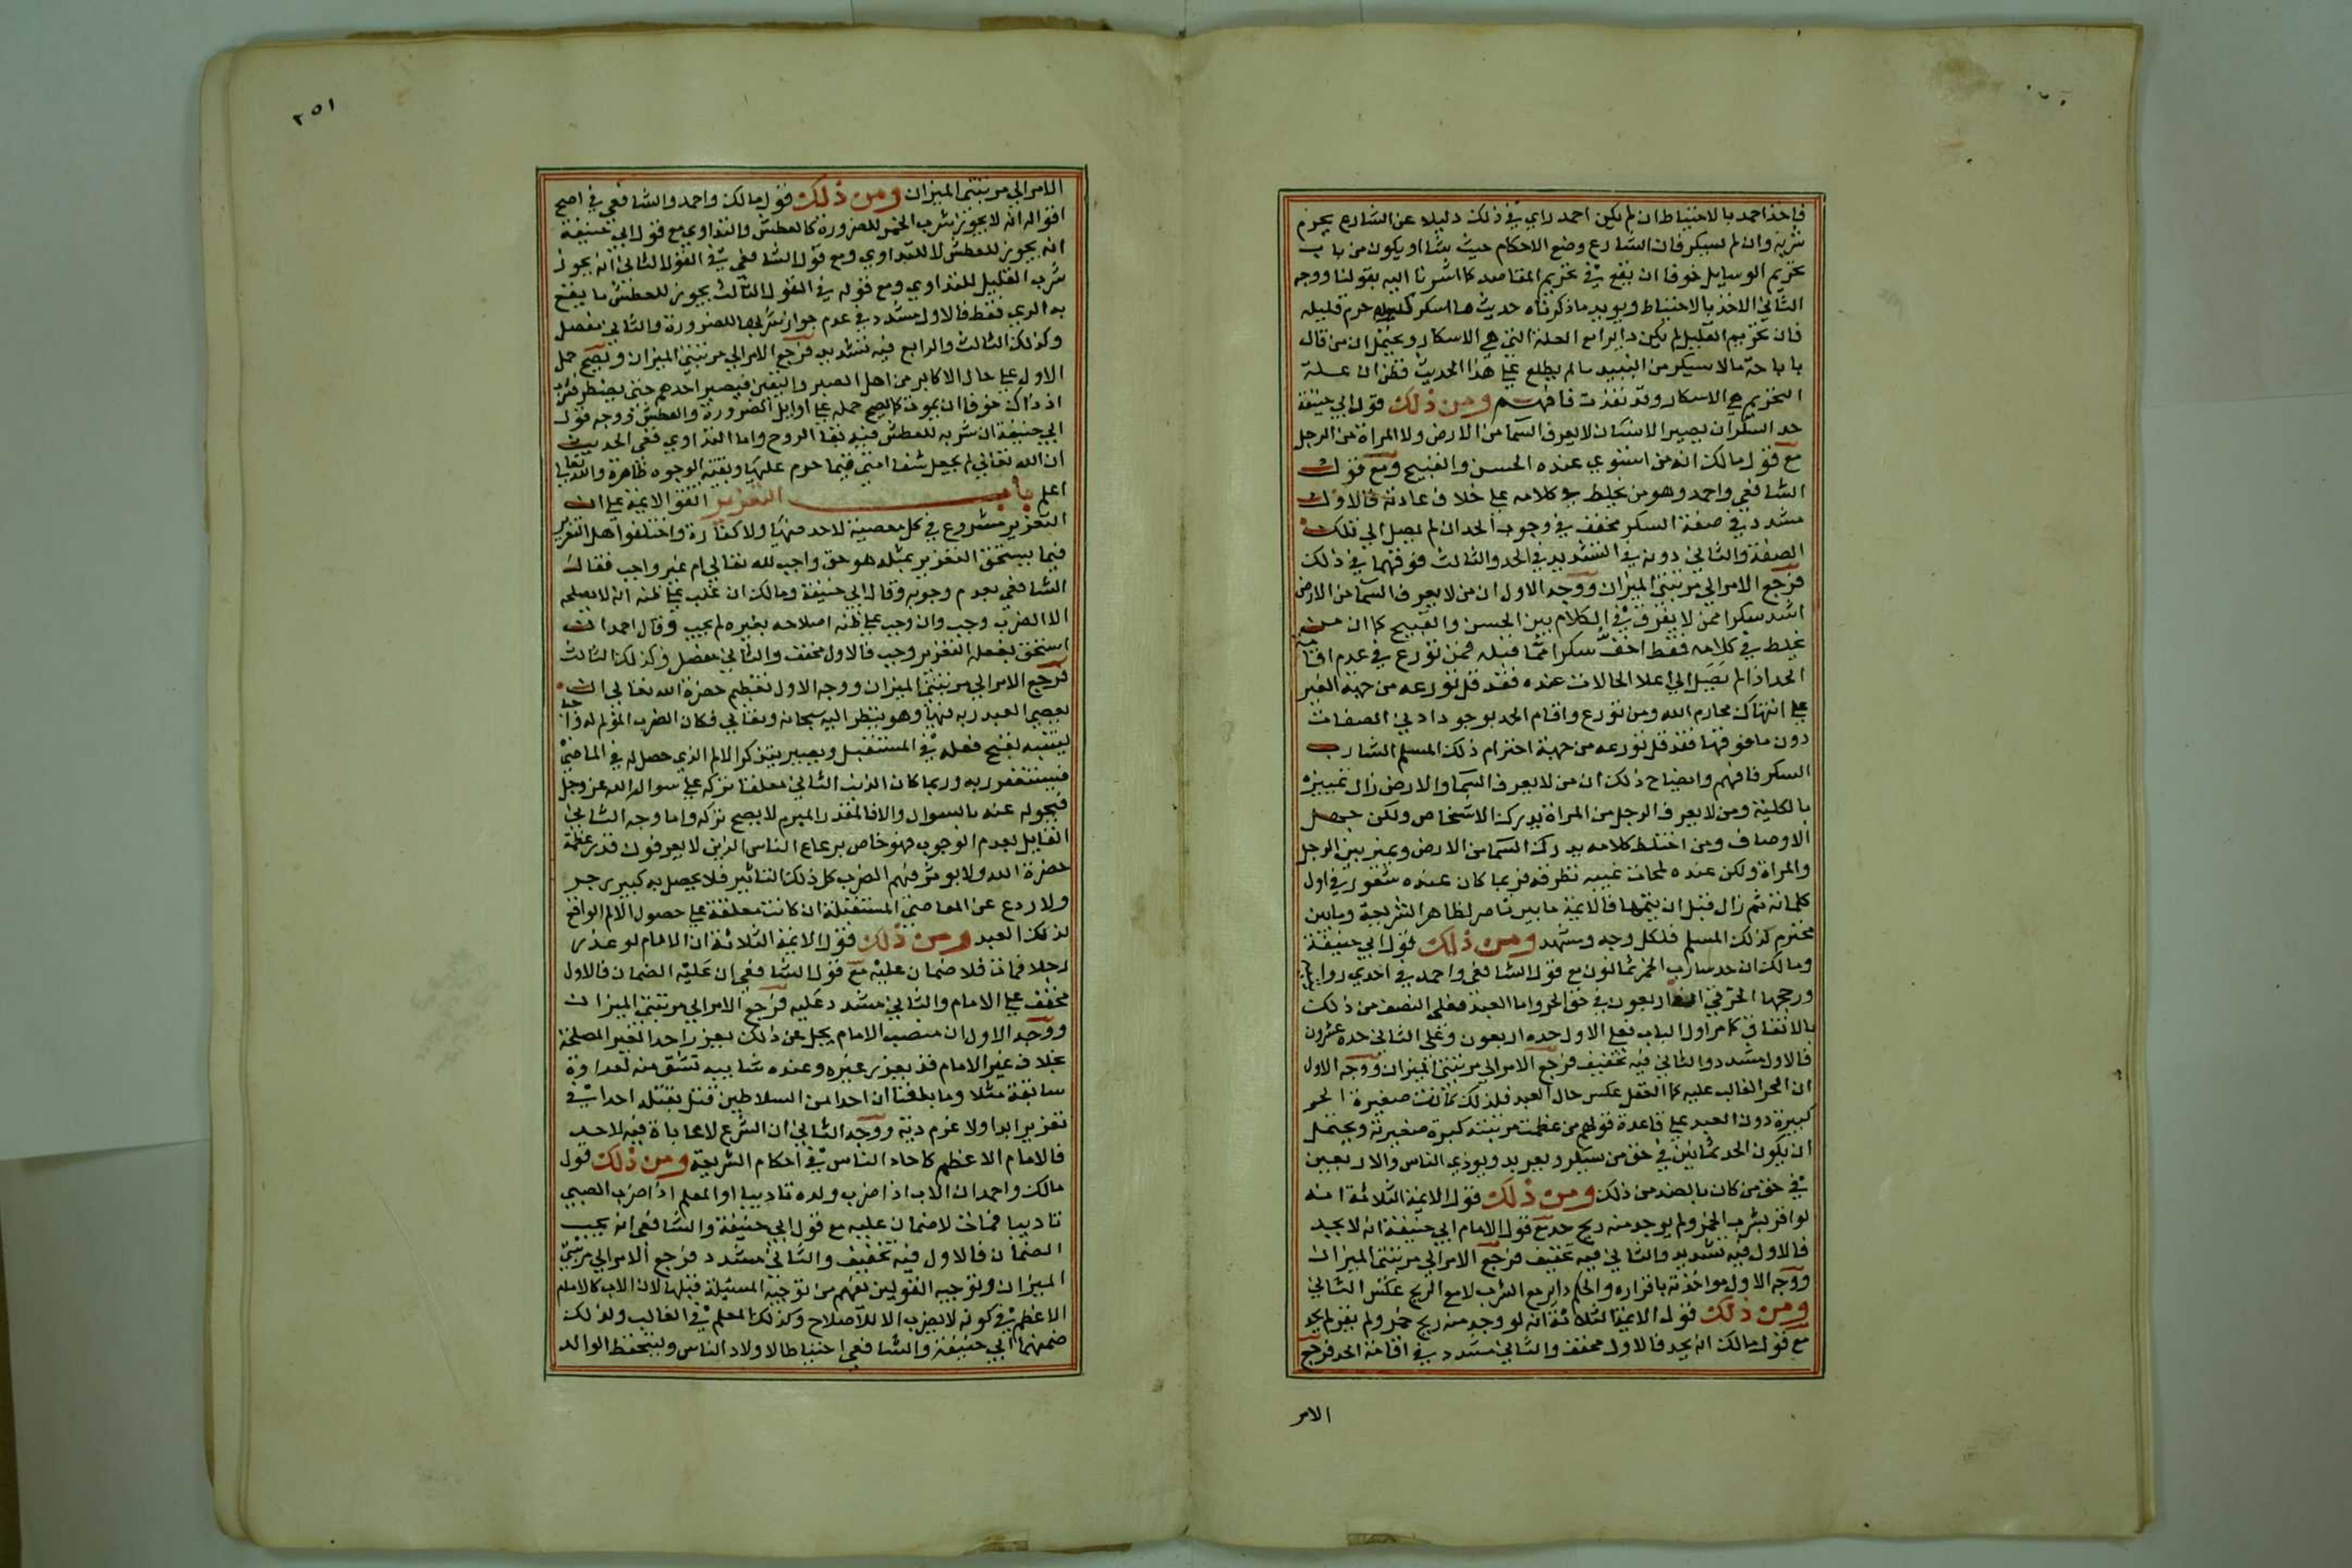 فاخذ احمد بالاحتياط ان لم يكن احمد راي في ذلك دليلا عن الشارع يحرم
شربه وان لم يسكر فان الشارع وضع الاحكام حيث شا او يكون من باب
تحريم الوسايل خوفا ان يقع في تحريم المقاصد كما اشرنا اليه بقولنا ووجه
الثاني الاخذ بالاحتياط ويويد ما ذكرناه حديث ما اسكر كثيره حرم قليله
فان تحريم القليل لم يكن دايرا مع العلة التي هي الاسكار ويحتمل ان من قال
باباحة ما لا يسكر من النبيذ مالم يطلع علي هذا الحديث فظن ان علة
التحريم هي الاسكار وقد نفذت فافهم ومن ذلك قول ابي حنيفة
حد السكر ان يصير الانسان لا يعرف السما من الارض ولا المراة من الرجل
مع قول مالك انه من استوي عنده الحسن والقبيح ومع قول
الشافعي واحمد وهو من يخلط في كلامه علي خلاف عادته فالاول
مشدد في صفة السكر مخفف في وجوب الحد ان لم يصل الي تلك
الصفة والثاني دونه في التشديد في الحد والثالث فوقهما في ذلك
فرجع الامر الي مرتبتي الميزان ووجه الاول ان من لا يعرف السما من الارض
اشد سكرا ممن لا يفرق في الكلام بين الحسن والقبيح كما ان من
غلط في كلامه فقط اخف سكرا مما قبله فمن تورع في عدم اقامة
الحد اذا لم يصل الي اعلا الحالات عنده فقد قل تورعه من جهة الغير
علي انتهاك محارم الله ومن تورع واقام الحد بوجود ادني الصفات
دون ما فوقها فقد قل تورعه من جهة احترام ذلك المسلم الشارب
السكر فافهم وايضاح ذلك ان من لا يعرف السما والارض زال تمييزه
بالكلية ومن لا يعرف الرجل من المراة يدرك الاشخاص ولكن جهل
الاوصاف ومن اختلط كلامه يدرك السما من الارض ويميز بين الرجل
والمراة ولكن عنده لمحات غيبه تطرقه فربما كان عنده شعور في اول
كلماته ثم زال قبل ان يتمها فالايمة ما بين ناصر لظاهر الشريعة وما بين
محترم لذلك المسلم فلكل وجه ومشهد ومن ذلك قول ابي حنيفة
ومالك ان حد شارب الخمر ثمانون مع قول الشافعي واحمد في احدي روايتيه
ورجحها الخرقي انها اربعون في حق الحر واما العبد فعلي النصف من ذلك
بالاتفاق كما مر اول الباب فعلي الاول حده اربعون وعلي الثاني حده عشرون
فالاول مشدد والثاني فيه تخفيف فرجع الامر الي مرتبتي الميزان ووجه الاول
ان الحر الغالب عليه كما العقل عكس حال العبد فلذلك كانت صغيرة الحر
كبيرة دون العبد علي قاعدة قولهم من عظمت مرتبته كبرت صغيرته ويحتمل
ان يكون الحد ثمانين في حق من يسكر ويعربد ويوذي الناس والاربعين
في حق من كان بالضد من ذلك ومن ذلك قول الايمة الثلاثة انه
لو اقر بشرب الخمر ولم يوجد منه ريح حد مع قول الامام ابي حنيفة انه لا يحد
فالاول فيه تشديد والثاني فيه تخفيف فرجع الامر الي مرتبتي الميزان
ووجه الاول مواخذته باقراره والحكم داير مع الشرب لا مع الريح عكس الثاني
ومن ذلك قول الايمة الثلاثة انه لو وجد منه ريح خمر ولم يقر لم يحد
مع قول مالك انه يحد فالاول مخفف والثاني مشدد في اقامة الحد فرجع
الامر
٢٥١
الامر الي مرتبتي الميزان ومن ذلك قول مالك واحمد والشافعي في اصح
اقواله انه لا يجوز شرب الخمر للضرورة كالعطش والتداوي مع قول ابي حنيفة
انه يجوز للعطش لا للتداوي ومع قول الشافعي في القول الثاني انه يجوز
شرب القليل للتداوي ومع قوله في القول الثالث يجوز للعطش ما يقع
به الري فقط فالاول مشدد في عدم جواز شربها للضرورة والثاني مفصل
وكذلك الثالث والرابع فيه تشديد فرجع الامر الي مرتبتي الميزان ويصح حمل
الاول علي حال الاكابر من اهل الصبر واليقين فيصبر احدهم حتي يضطر فيشرب
اذ ذاك خوفا ان يموت كما يصح حمله علي اوايل الضرورة والعطش ووجه قول
ابي حنيفة ان شربه للعطش فيه بقا الروح واما التداوي ففي الحديث
ان الله تعالي لم يجعل شفا امتي فيما حرم عليها وبقية الوجوه ظاهرة والله تعالي
اعلم باب التعزير اتفق الايمة علي ان
التعزير مشروع في كل معصية لا حد فيها ولا كفارة واختلفوا هل التعزير
فيما يستحق التعزير بمثله هو حق واجب لله تعالي ام غير واجب فقال
الشافعي بعدم وجوبه وقال ابي حنيفة ومالك ان غلب علي ظنه انه لا يصلحه
الا الضرب وجب وان وجب علي ظنه اصلاحه بغيره لم يجب وقال احمد ان
استحق بفعله التعزير وجب فالاول مخفف والثاني مفصل وكذلك الثالث
فرجع الامر الي مرتبتي الميزان ووجه الاول تعظيم حضرة الله تعالي ان
يعصي العبد ربه فيها وهو ينظر اليه سبحانه وتعالي فكان الضرب المولم له
ليتنبه لقبح فعله في المستقبل ويصير يتذكر الالم الذي حصل له في الماضي
فيستغفر ربه وربما كان الذنب الثاني معلقا تركه علي سوال الله عز وجل
فيحوله عنه بالسوال والا فالمقدر المبرم لا يصح تركه واما وجه الثاني
القايل بعدم الوجوب فهو خاص برعاع الناس الذين لا يعرفون قدر عظمة
حضرة الله ولا يوثر فيهم الضرب كل ذلك التاثير فلا يحصل به كبير زجر
ولا ردع عن المعاصي المستقبلة ان كانت معلقة علي حصول الالم الواقع
لذلك العبد ومن ذلك قول الايمة الثلاثة ان الامام لو عزر
رجلا فمات فلا ضمان عليه مع قول الشافعي ان عليه الضمان فالاول
مخفف علي الامام والثاني مشدد عليه فرجع الامر الي مرتبتي الميزان
ووجه الاول ان منصب الامام يجل عن ذلك يعزر احدا لغير المصلحة
بخلاف غير الامام قد يعزر غيره وعنده شايبه تشق منه لعداوة
سابقة مثلا وما بلغنا ان احدا من السلاطين قتل بقتله احدا في
تعزير ابدا ولا غرم دية ووجه الثاني ان الشرع لا محاباة فيه لاحد
فالامام الاعظم كاحاد الناس في احكام الشريعة ومن ذلك قول
مالك واحمد ان الاب اذا ضرب ولده تاديبا او المعلم اذا ضرب الصبي
تاديبا فمات لا ضمان عليه مع قول ابي حنيفة والشافعي انه يجب
الضمان فالاول فيه تخفيف والثاني مشدد فرجع الامر الي مرتبتي
الميزان وتوجيه القولين يفهم من توجيه المسئلة قبلها لان الاب كالامام
الاعظم في كونه لا يضرب الا للاصلاح وكذلك المعلم في الغالب ولذلك
ضمنهما ابي حنيفة والشافعي احتياطا لاولاد الناس وليتحفظ الوالد